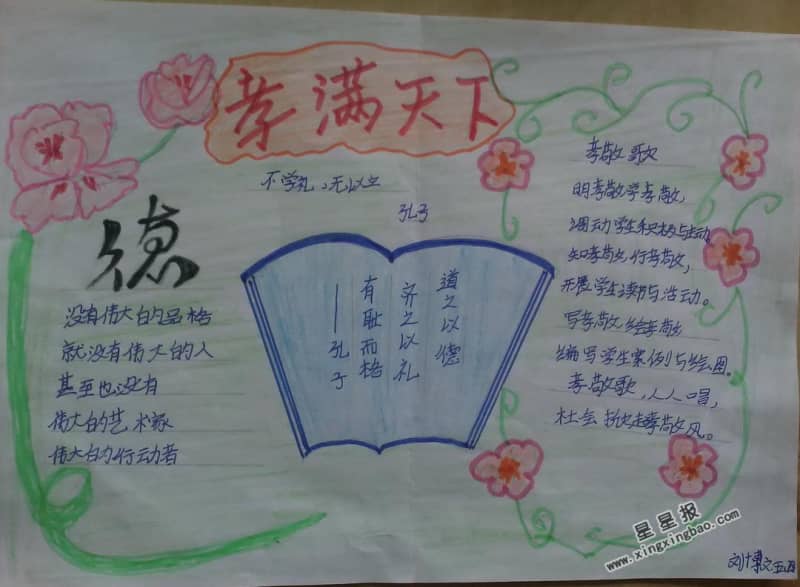 孝满天下
不学礼，无以立
孔子
德
没有伟大的品格
就没有伟大的人
甚至也没有
伟大的艺术家
伟大的行动者
道之以德
齐之以礼
有耻而格
——孔子
孝敬歌
明孝敬学孝敬，
调动学生积极与主动
知孝敬，行孝敬，
开展学生读书与活动。
写孝敬绘孝敬
编写学生案例与绘图。
孝敬歌，人人唱，
社会扬起孝敬风。
星星报
www.xingxingbao.com
刘博文